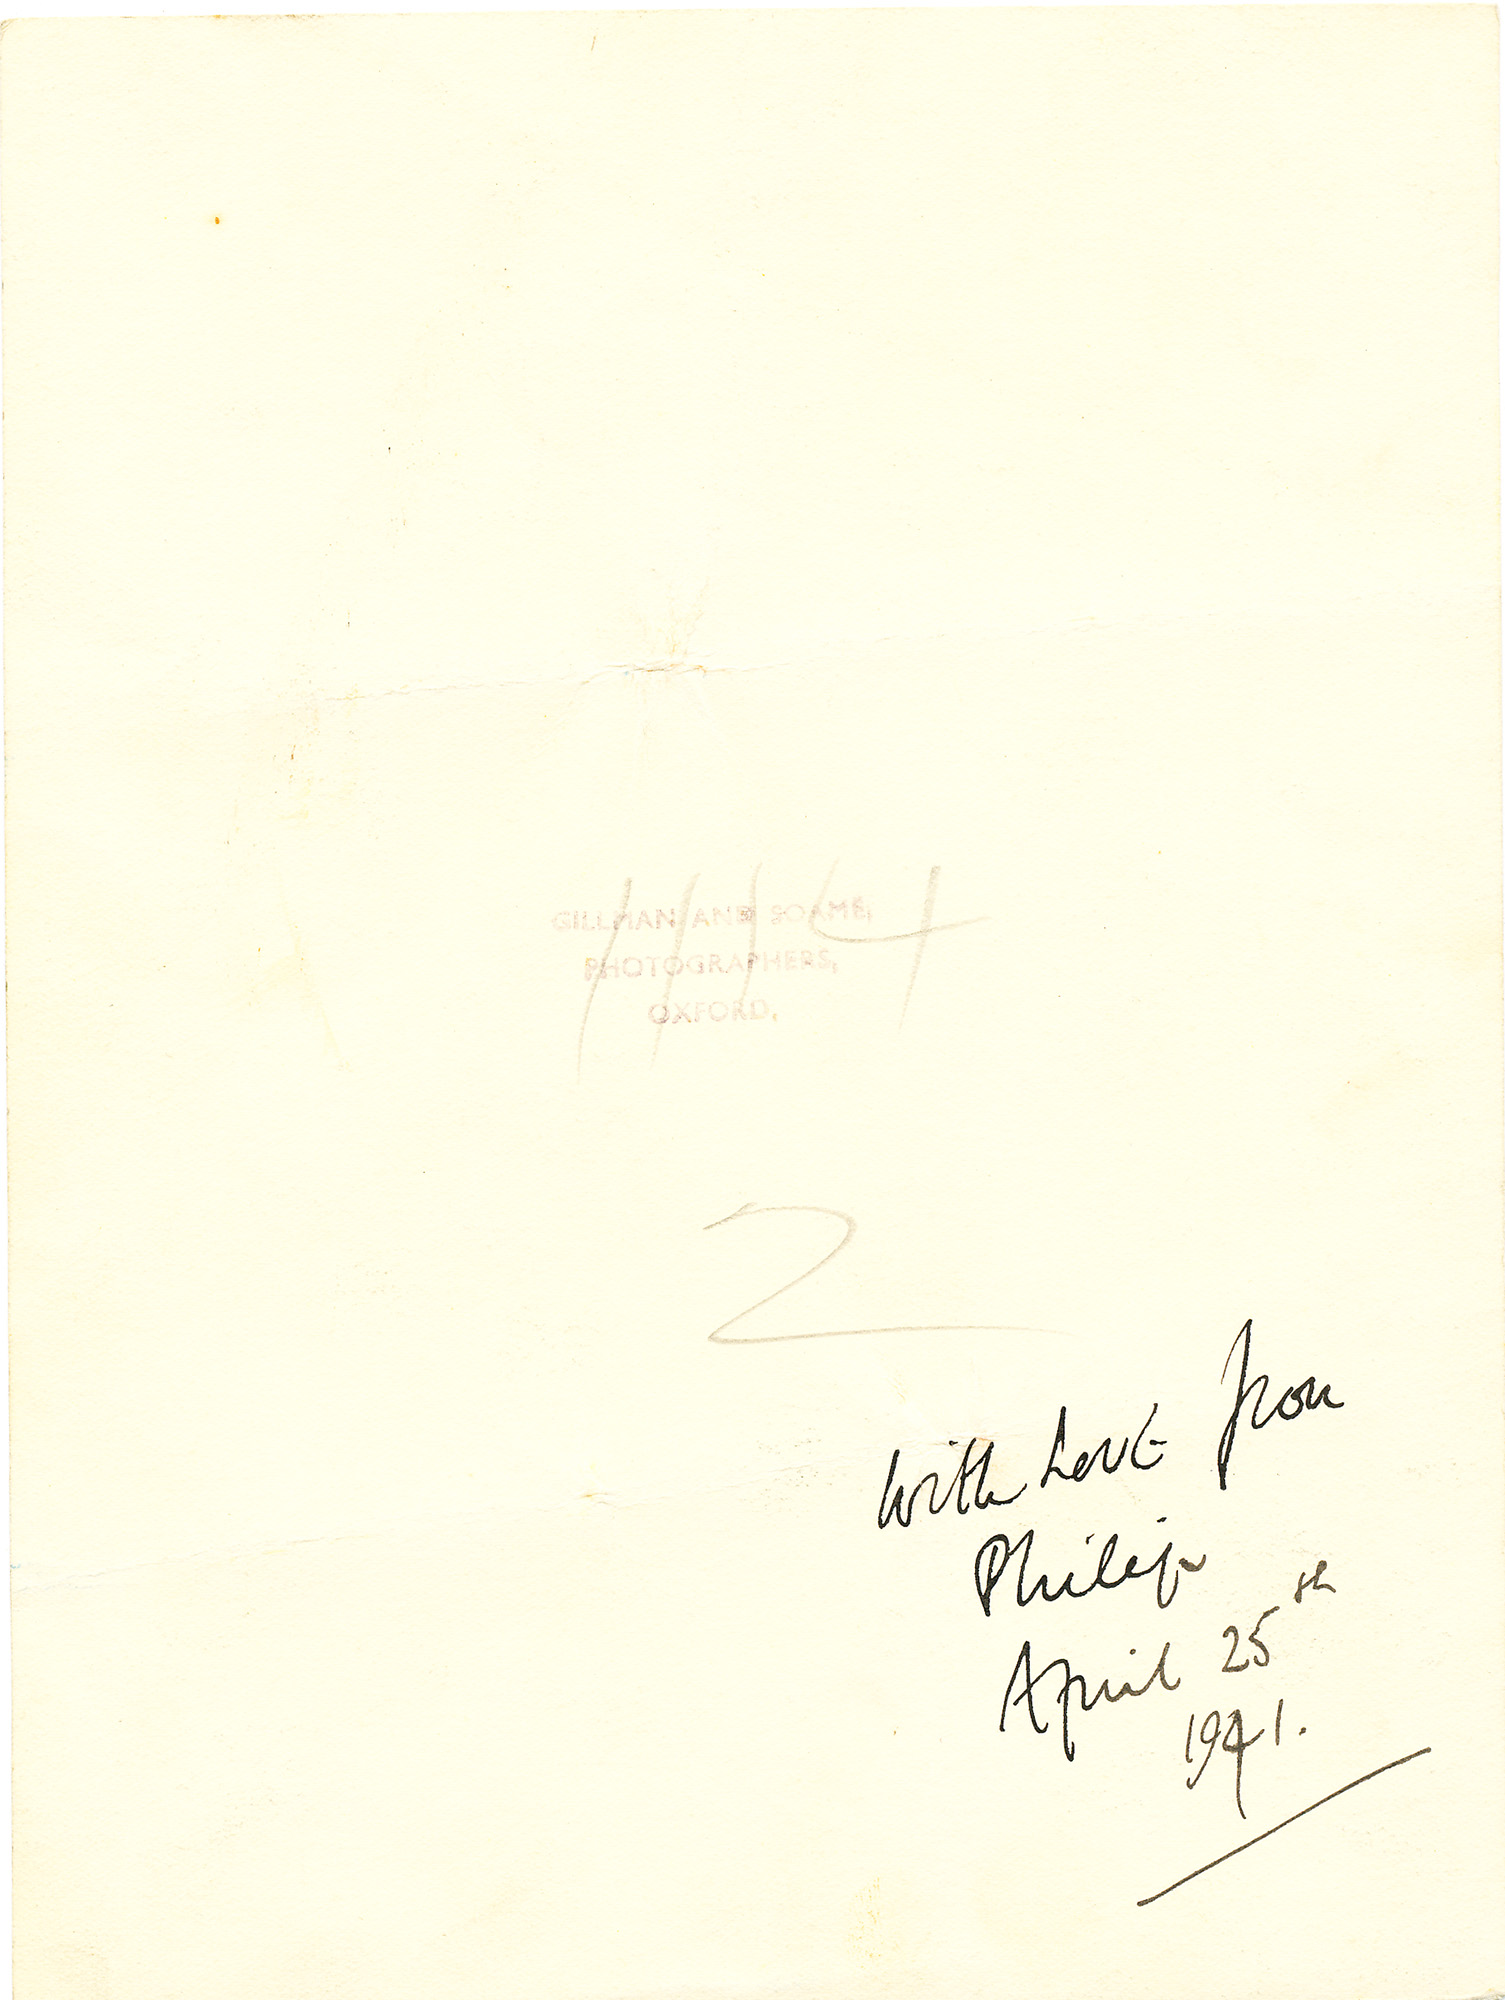 GILLMAN AND SOAME,
PHOTOGRAPHERS,
OXFORD.
1114
2
With Love from
Philip
April 25th
1941.